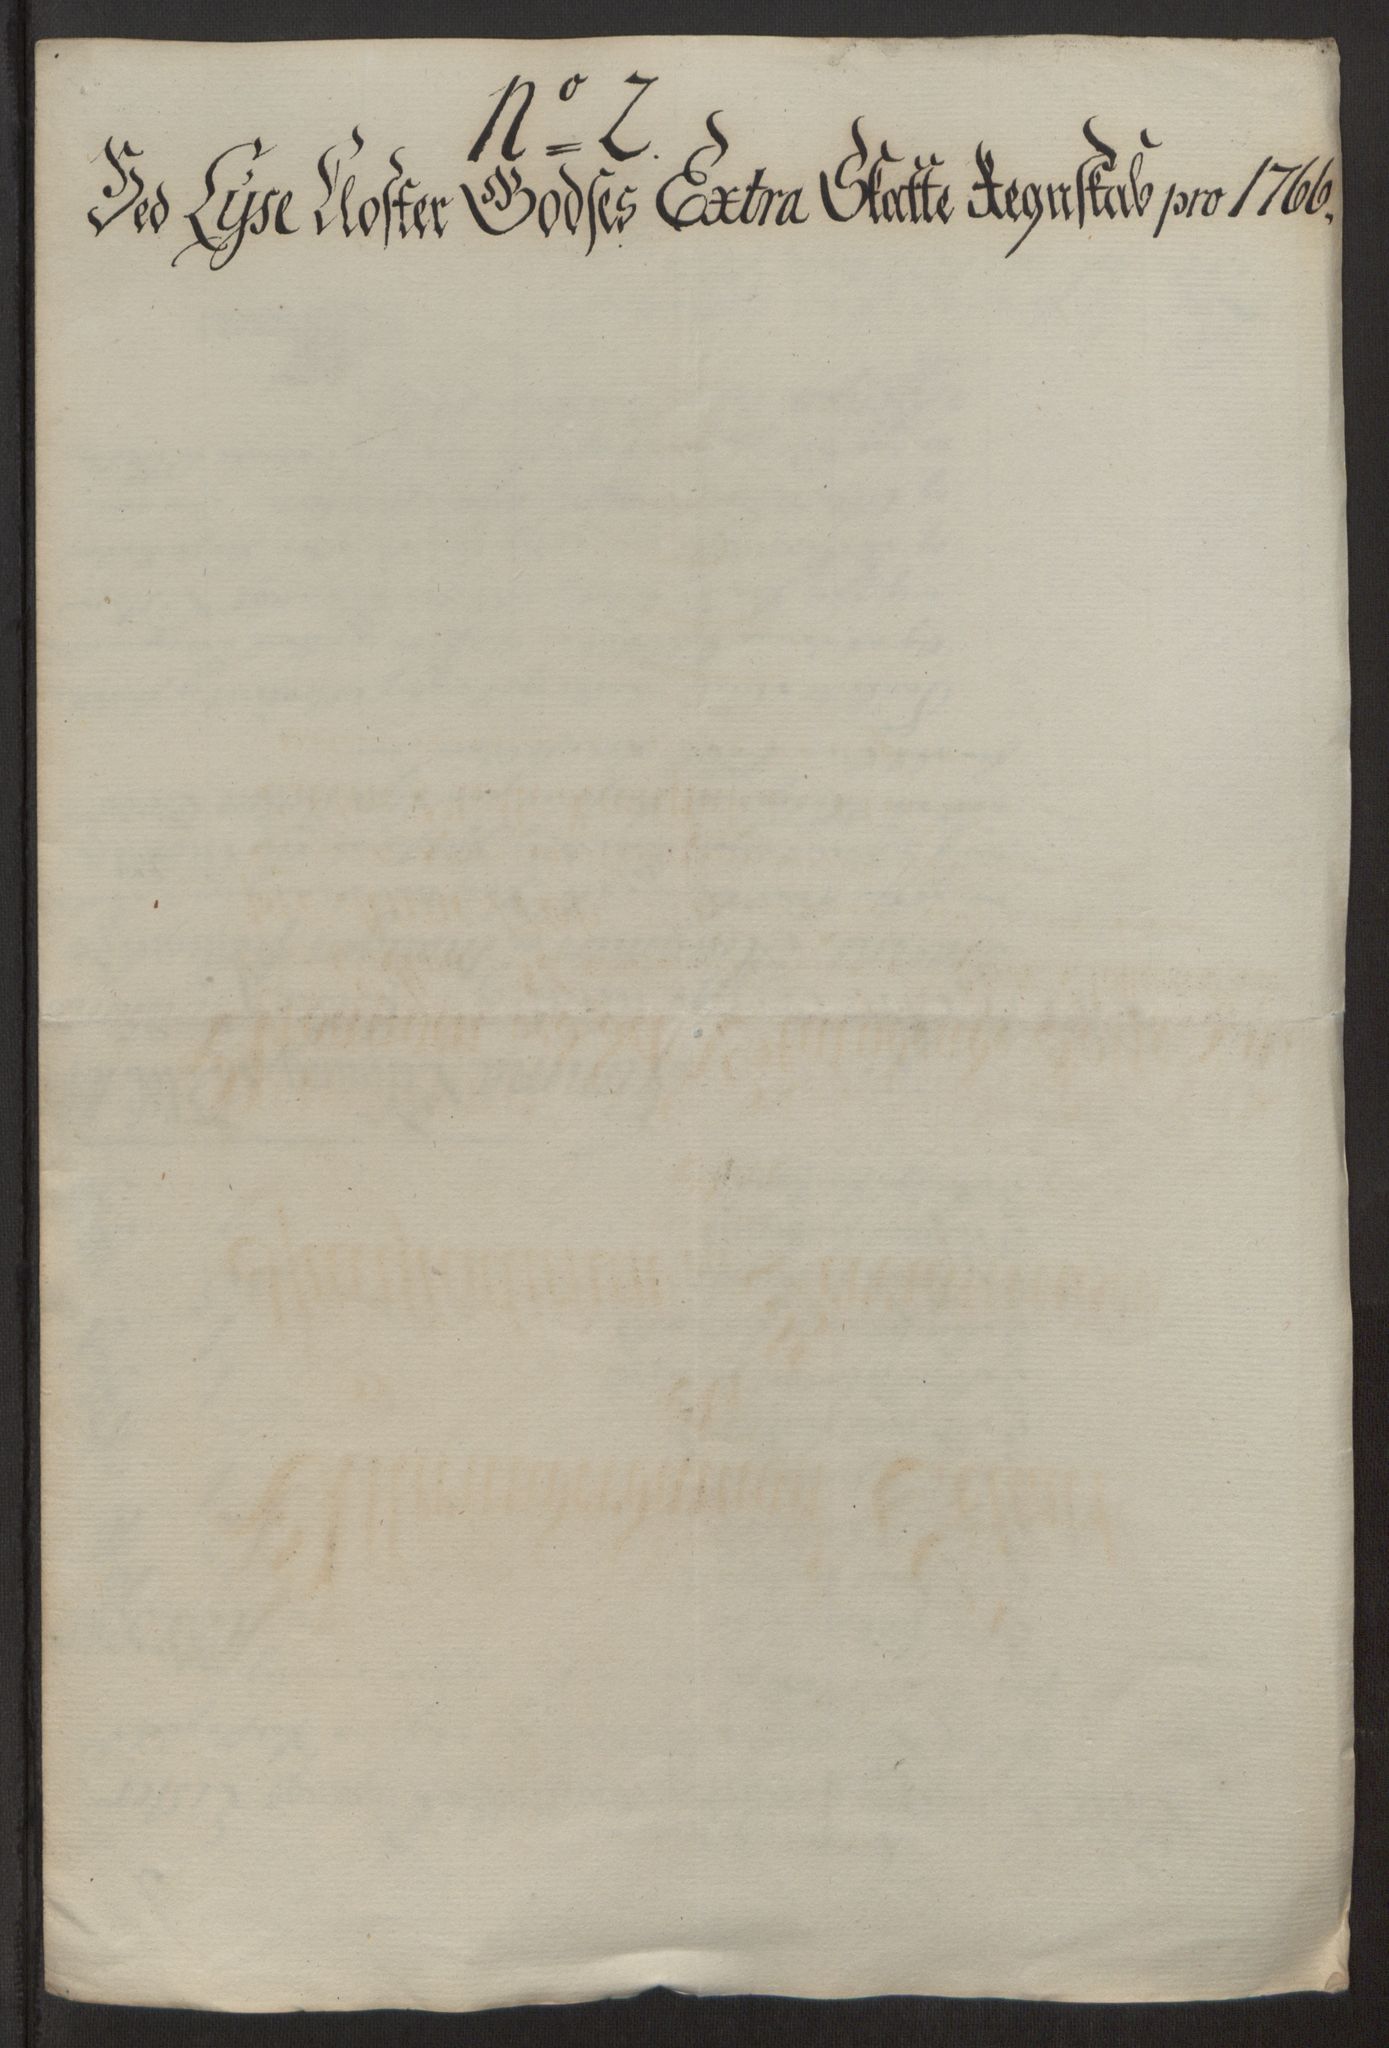 No = 2.
Ved Lyse Kloster Godses Extra Skatte Regnskab pro 1766.